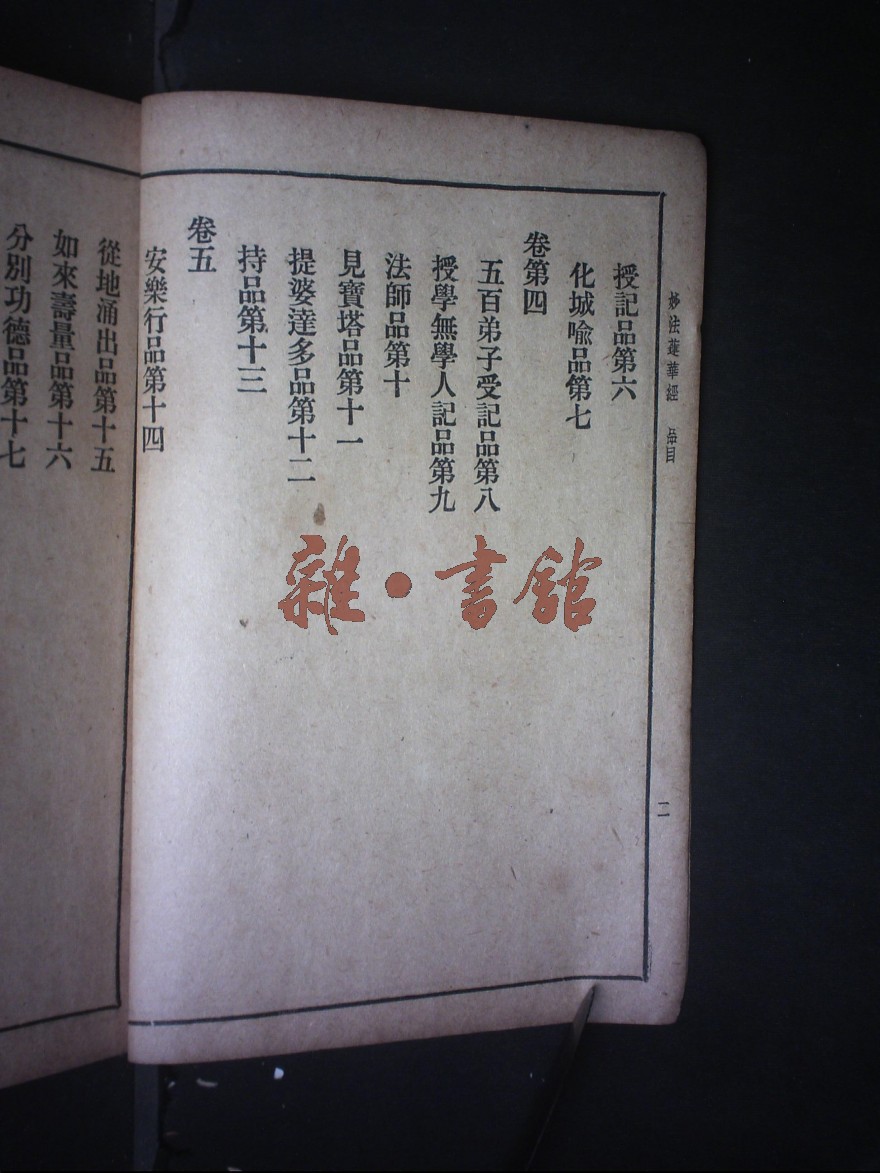 妙法蓮華經 品目
二
授記品第六
化城喻品第七
卷第四
五百弟子受記品第八
授學無學人記品第九
法師品第十
見寶塔品第十一
提婆達多品第十二
持品第十三
卷五
安樂行品第十四
從地涌出品第十五
如來壽量品第十六
分別功德品第十七
雜·書館